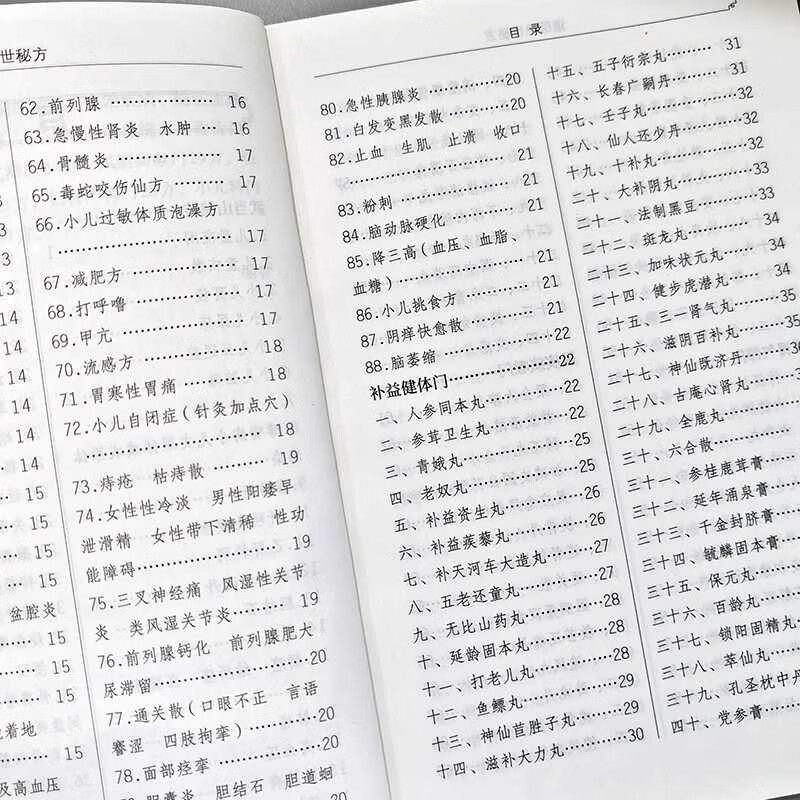 世秘方
13
13
14
14
14
14
14
15
15
15
盆腔炎
15
15
15
着地
15
及高血压
62.前列腺 16
63.急慢性肾炎 水肿 16
64.骨髓炎 17
65.毒蛇咬伤仙方 17
66.小儿过敏体质泡澡方
17
67.减肥方 17
68.打呼噜 17
69.甲亢 17
70.流感方 18
71.胃寒性胃痛 18
72.小儿自闭症(针灸加点穴)
18
73.痔疮 枯痔散 19
74.女性性冷淡 男性阳痿早
泄滑精 女性带下清稀 性功
能障碍 19
75.三叉神经痛 风湿性关节
炎 类风湿关节炎 19
76.前列腺钙化 前列腺肥大
尿滞留 20
77.通关散(口眼不正 言语
謇涩 四肢拘挛) 20
78.面部痉挛 20
胆囊炎 胆结石 胆道蛔
目录
80.急性胰腺炎 20
81.白发变黑发散 20
82.止血 生肌 止溃 收口
21
83.粉刺 21
84.脑动脉硬化 21
85.降三高(血压、血脂、
血糖) 21
86.小儿挑食方 21
87.阴痒快愈散 21
88.脑萎缩 22
补益健体门 22
一、人参固本丸 22
二、参茸卫生丸 24
三、青娥丸 25
四、老奴丸 25
五、补益资生丸 26
六、补益蒺藜丸 26
七、补天河车大造丸 27
八、五老还童丸 27
九、无比山药丸 28
十、延龄固本丸 28
十一、打老儿丸 28
十二、鱼鳔丸 29
十三、神仙苣胜子丸 29
十四、滋补大力丸 30
十五、五子衍宗丸 31
十六、长春广嗣丹 31
十七、壬子丸 32
十八、仙人还少丹 32
十九、十补丸 32
二十、大补阴丸 33
二十一、法制黑豆 33
二十二、斑龙丸 34
二十三、加味状元丸 34
二十四、健步虎潜丸 34
二十五、三一肾气丸 35
二十六、滋阴百补丸 35
二十七、神仙既济丹
二十八、古庵心肾丸
二十九、全鹿丸
三十、六合散
三十一、参桂鹿茸膏
三十二、延年涌泉膏
三十三、千金封脐膏
三十四、毓麟固本膏
三十五、保元丸
三十六、百龄丸
三十七、锁阳固精丸
三十八、萃仙丸
三十九、孔圣枕中丹
四十、党参膏